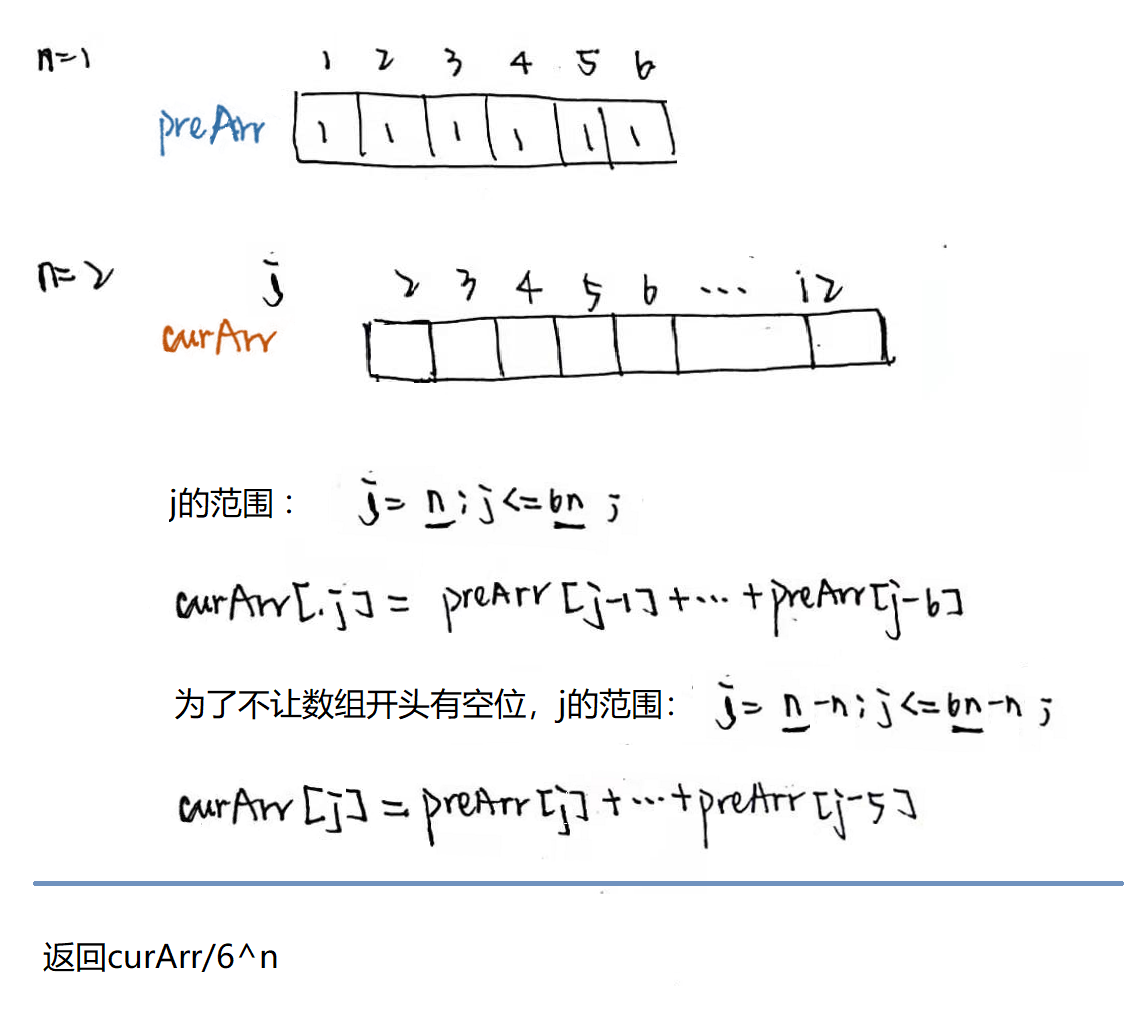 n=1 1 2 3 4 5 6
preArr 1 1 1 1 1 1
n=2 j 2 3 4 5 6 ... 12
curArr
j的范围： j=n;j<=6n;
curArr[j]= preArr[j-1]+...+preArr[j-6]
为了不让数组开头有空位，j的范围： j=n-n;j<=6n-n;
curArr[j]=preArr[j]+...+preArr[j-5]
返回curArr/6^n